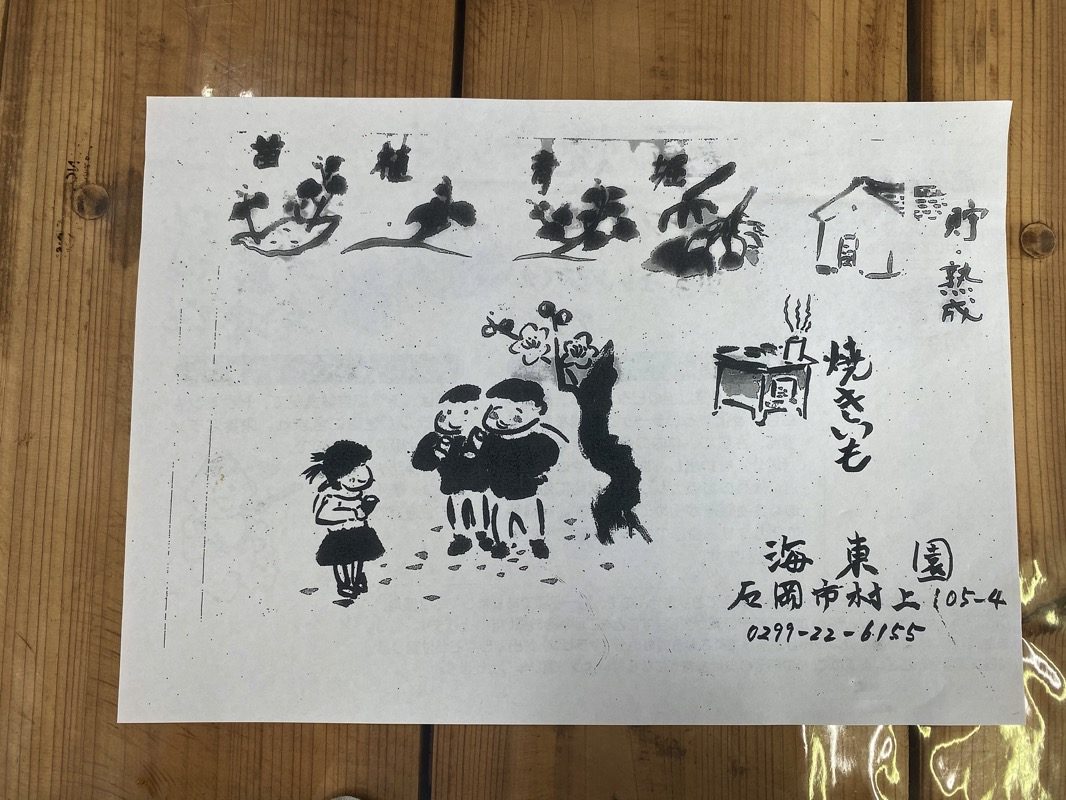 苗
植
育
掘
貯・熟成
焼きいも
海東園
石岡市村上105-4
0299-22-6155